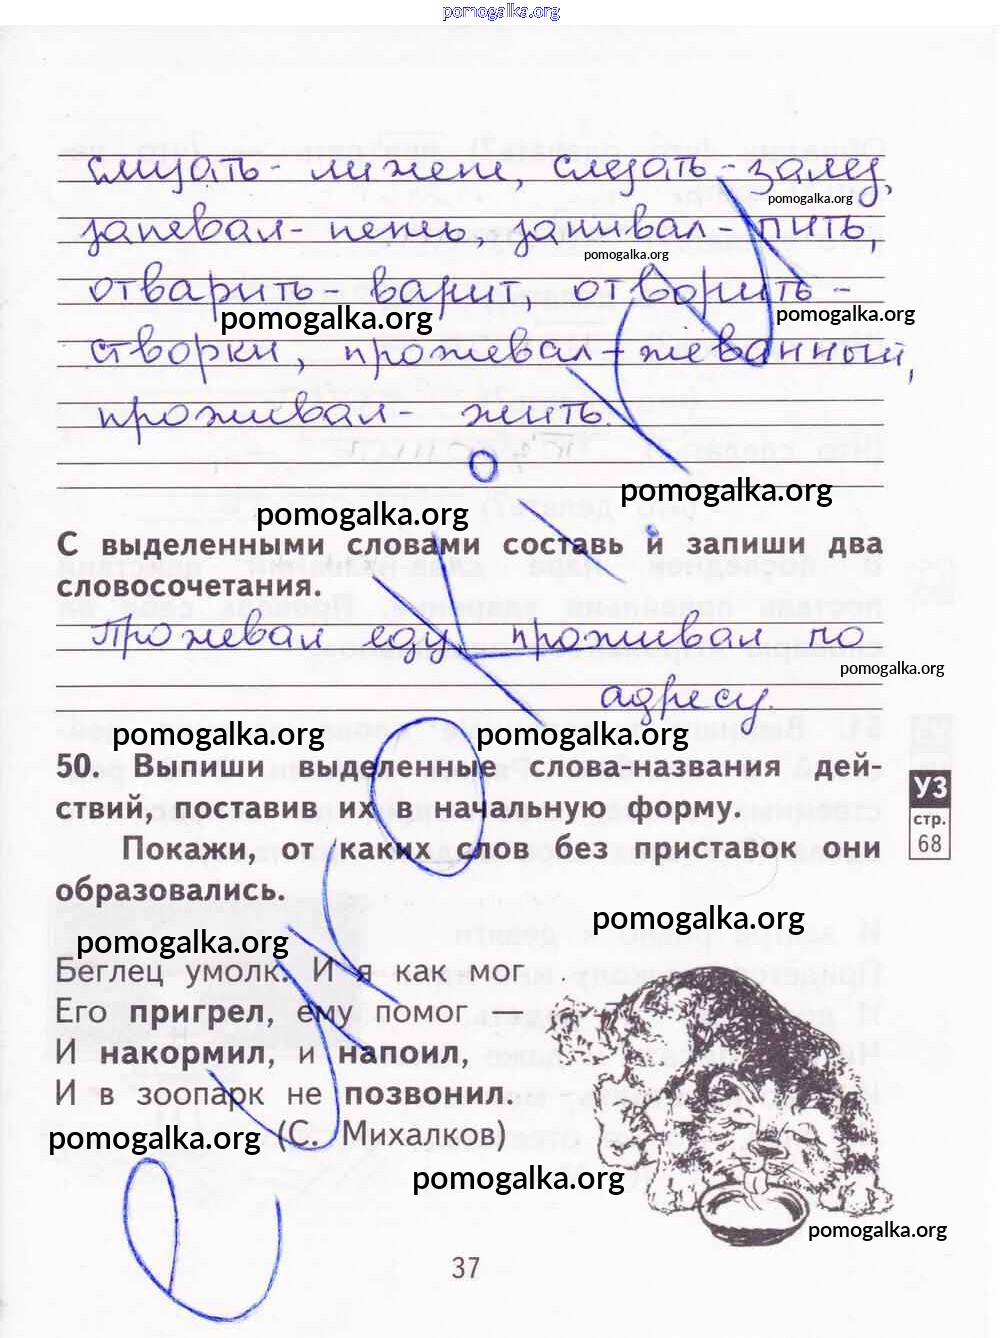 pomogalka.org
слизать - лижет, слезать - залез,
pomogalka.org
запевал - петь, запивал - пить,
pomogalka.org
отварить - варит, отворить -
pomogalka.org pomogalka.org
створки, прожевал - жеванный,
проживал - жить.
pomogalka.org
pomogalka.org
С выделенными словами составь и запиши два
словосочетания.
Прожевал еду, проживал по
pomogalka.org
адресу.
pomogalka.org pomogalka.org
50. Выпиши выделенные слова-названия дей-
ствий, поставив их в начальную форму.
УЗ
стр.
68
Покажи, от каких слов без приставок они
образовались.
pomogalka.org
pomogalka.org
Беглец умолк. И я как мог
Его пригрел, ему помог
И накормил, и напоил,
И в зоопарк не позвонил.
pomogalka.org (С. Михалков)
pomogalka.org
pomogalka.org
37